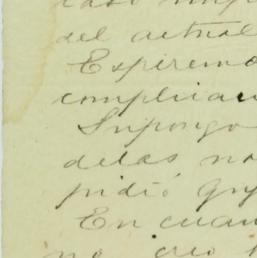 caso
del actual
Espiremo
complican
Supongo
delas no
pidió
En cuan
no creo